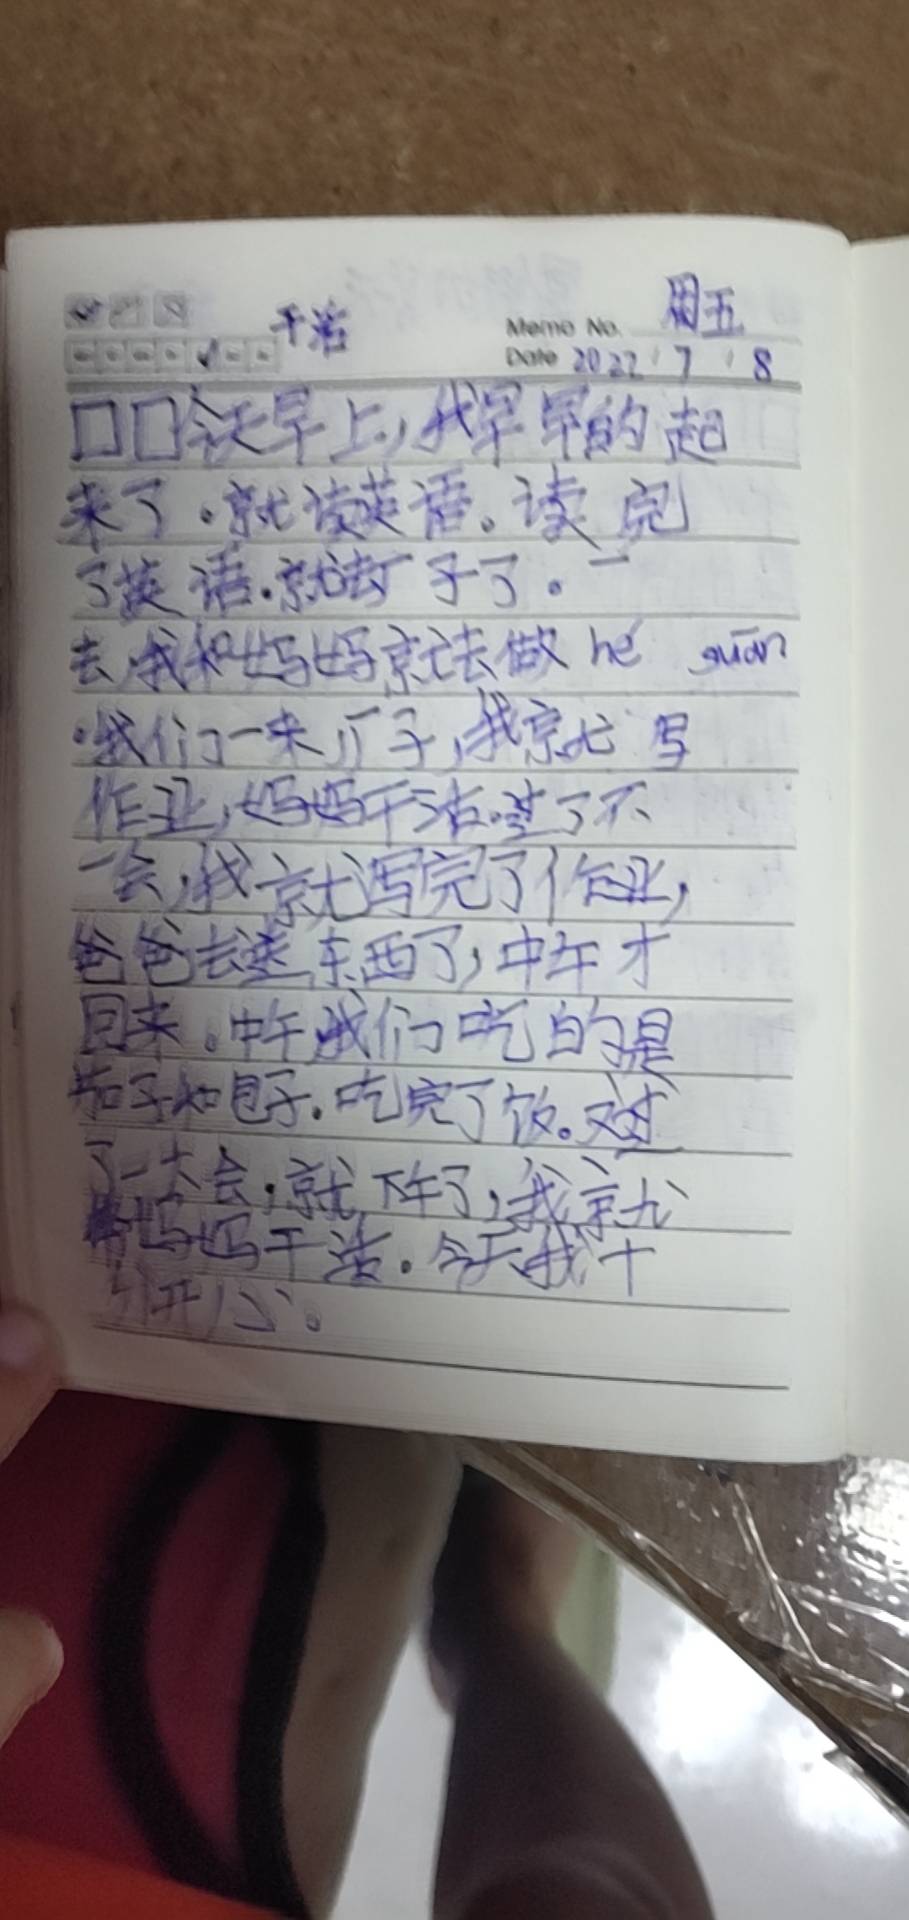 干活
周五
Memo No.
Date 2022 7 8
口口今天早上,我早早的起
来了.就读英语。读完
了英语.就去厂子了。一
去,我和妈妈就去做hé suān
.我们一来厂子,我就写
作业,妈妈干活.过了不
一会,我就写完了作业,
爸爸去送东西了,中午才
回来。中午我们吃的是
茄子和包子.吃完了饭。又过
了一大会,就下午了,我就
帮妈妈干活。今天我十
分开心。